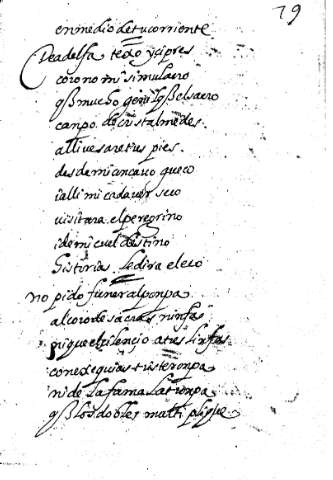 79
en medio de tu corriente
Deadelfa texo y cipres
corono mi simulacro
q̃ mucho genil q̃ el sacro
canpo de cristal me des.
alli vesare tus pies.
desde mi concavo gueco
i alli mi cadaver seco
visitara el peregrino
i de mi cruel destino
historias le dira el eco
no pido funeral ponpa
al coro de sacras ninfas
ni que el silençio a tus linfas
con exequias triste ronpa
ni de la fama la tronpa
q̃ los dobles multiplique.